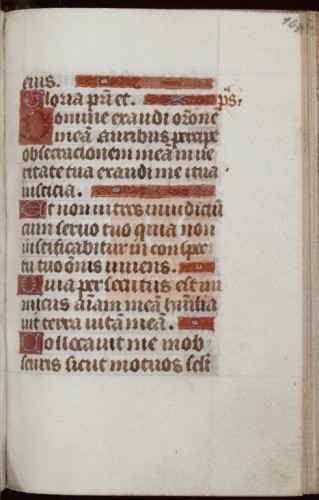 eius.
Gloria pri et. ps.
Domine exaudi orōne
meā auribus percipe
obsecrationem meā in ue
ritate tua exaudi me i tua
iusticia.
Et non intres in iudiciū
cum seruo tuo quia non
iustificabitur in conspec
tu tuo ōnis uiuens.
Quia persecutus est ini
micus aīam meā humilia
uit in terra uitā meā.
Collocauit me in ob
scuris sicut mortuos secli